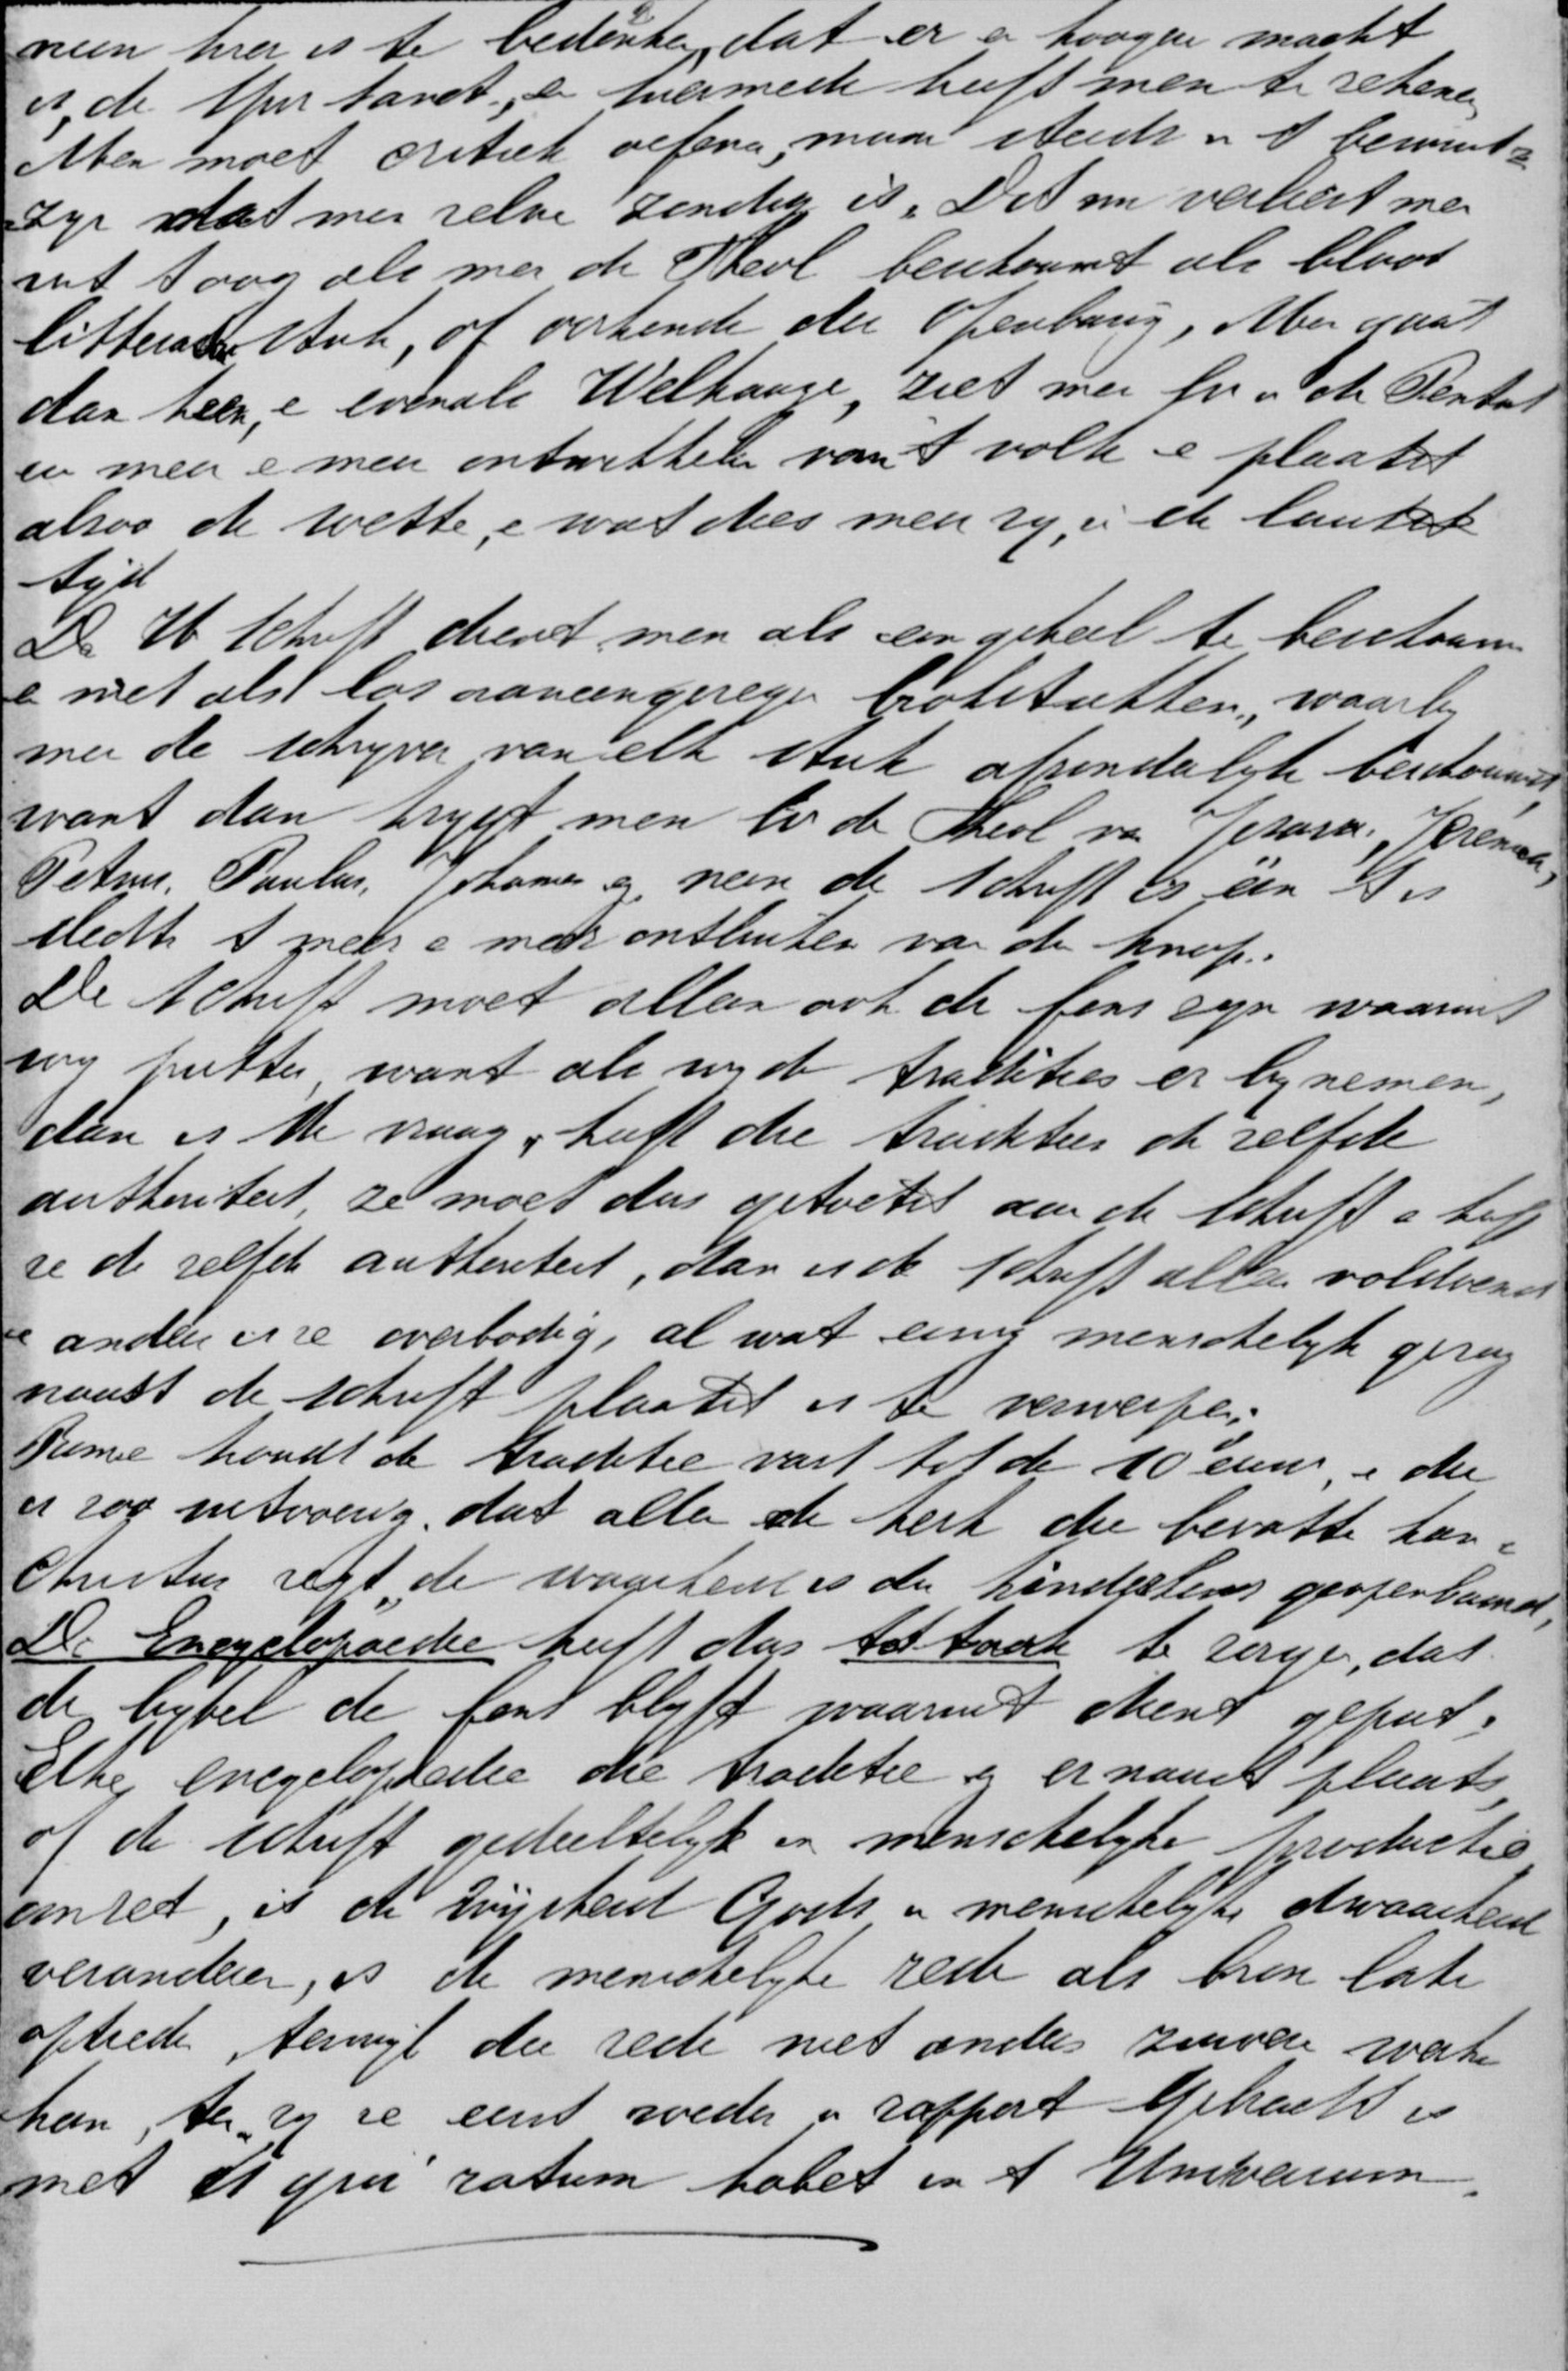 neen hier is te bedenken, dat er e hoogere macht
is, de Spur tandt, e hiermede heeft men te rekenen
Men moet critiek oefene, maar steeds i 't bewust=
=zyn dat men zelve zondig is. Dit nu verliest men
uit 't oog als men de Theol beschouwt als bloot
litterair stuk, of oorkonde der Openbaring, Men gaat
dan heen, e evenals Welhause, ziet men bv i de Pentat
en meer e meer ontwikkelen van 't volk e plaatst
alzoo de wette, e wat dies meer zy, i de laatste
tijd
De H Schrift dient men als een geheel te beschouwen
e niet als los aaneengeregen brokstukken, waarby
men de schryver van elk stuk afzonderlyk beschouwt,
want dan krygt men bv de Theol va Jesaia, Jeremia,
Petrus, Paulus, Johannes eg neen de Schrift is één 't is
slechts 't meer e meer ontsluiten van de knop.
De Schrift moet alleen ook de fons zyn waaruit
wy putten, want als wy de tradities er by nemen,
dan is de vraag, heeft die tradities de zelfde
authoriteit, ze moet dus getoetst aan de Schrift e heeft
ze de zelfde authoriteit, dan is de Schrift alleen voldoende
e anders is ze overbodig, al wat eenig menschelyk gezag
naast de schrift plaatst is te verwerpen.
Rome houdt de traditie vast tot de 10e eeuw, e die
is zoo uitvoerig, dat alleen de kerk die bevatte kan.
Christus zegt, de waarheid is den kinderkens geopenbaard,
De Encyclopaedie heeft dus tot taak te zorgen, dat
de bybel de fons blyft waaruit dient geput.
Elke encyclopaedie die traditie eg er naast plaats,
of de schrift gedeeltelyk en menschelyke productie
anziet, is de wijsheid Gods i menschelyke dwaasheid
veranderen, is de menschelyke rede als bron late
optrede, terwyl die rede niet anders zuiver werke
kan, ten zy ze eerst weder i rapport gebracht is
met is qui ratum habet in 't Universum.